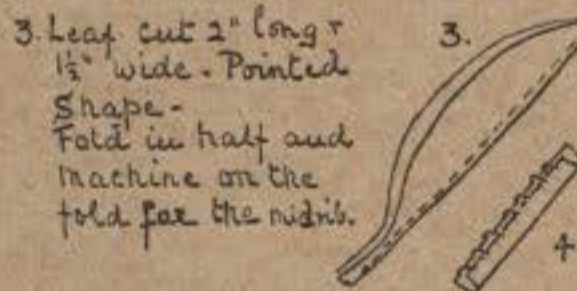 3. Leaf cut 2" long +
1½" wide. Pointed
Shape-
Fold in half and
machine on the
fold for the midrib.
3.
4